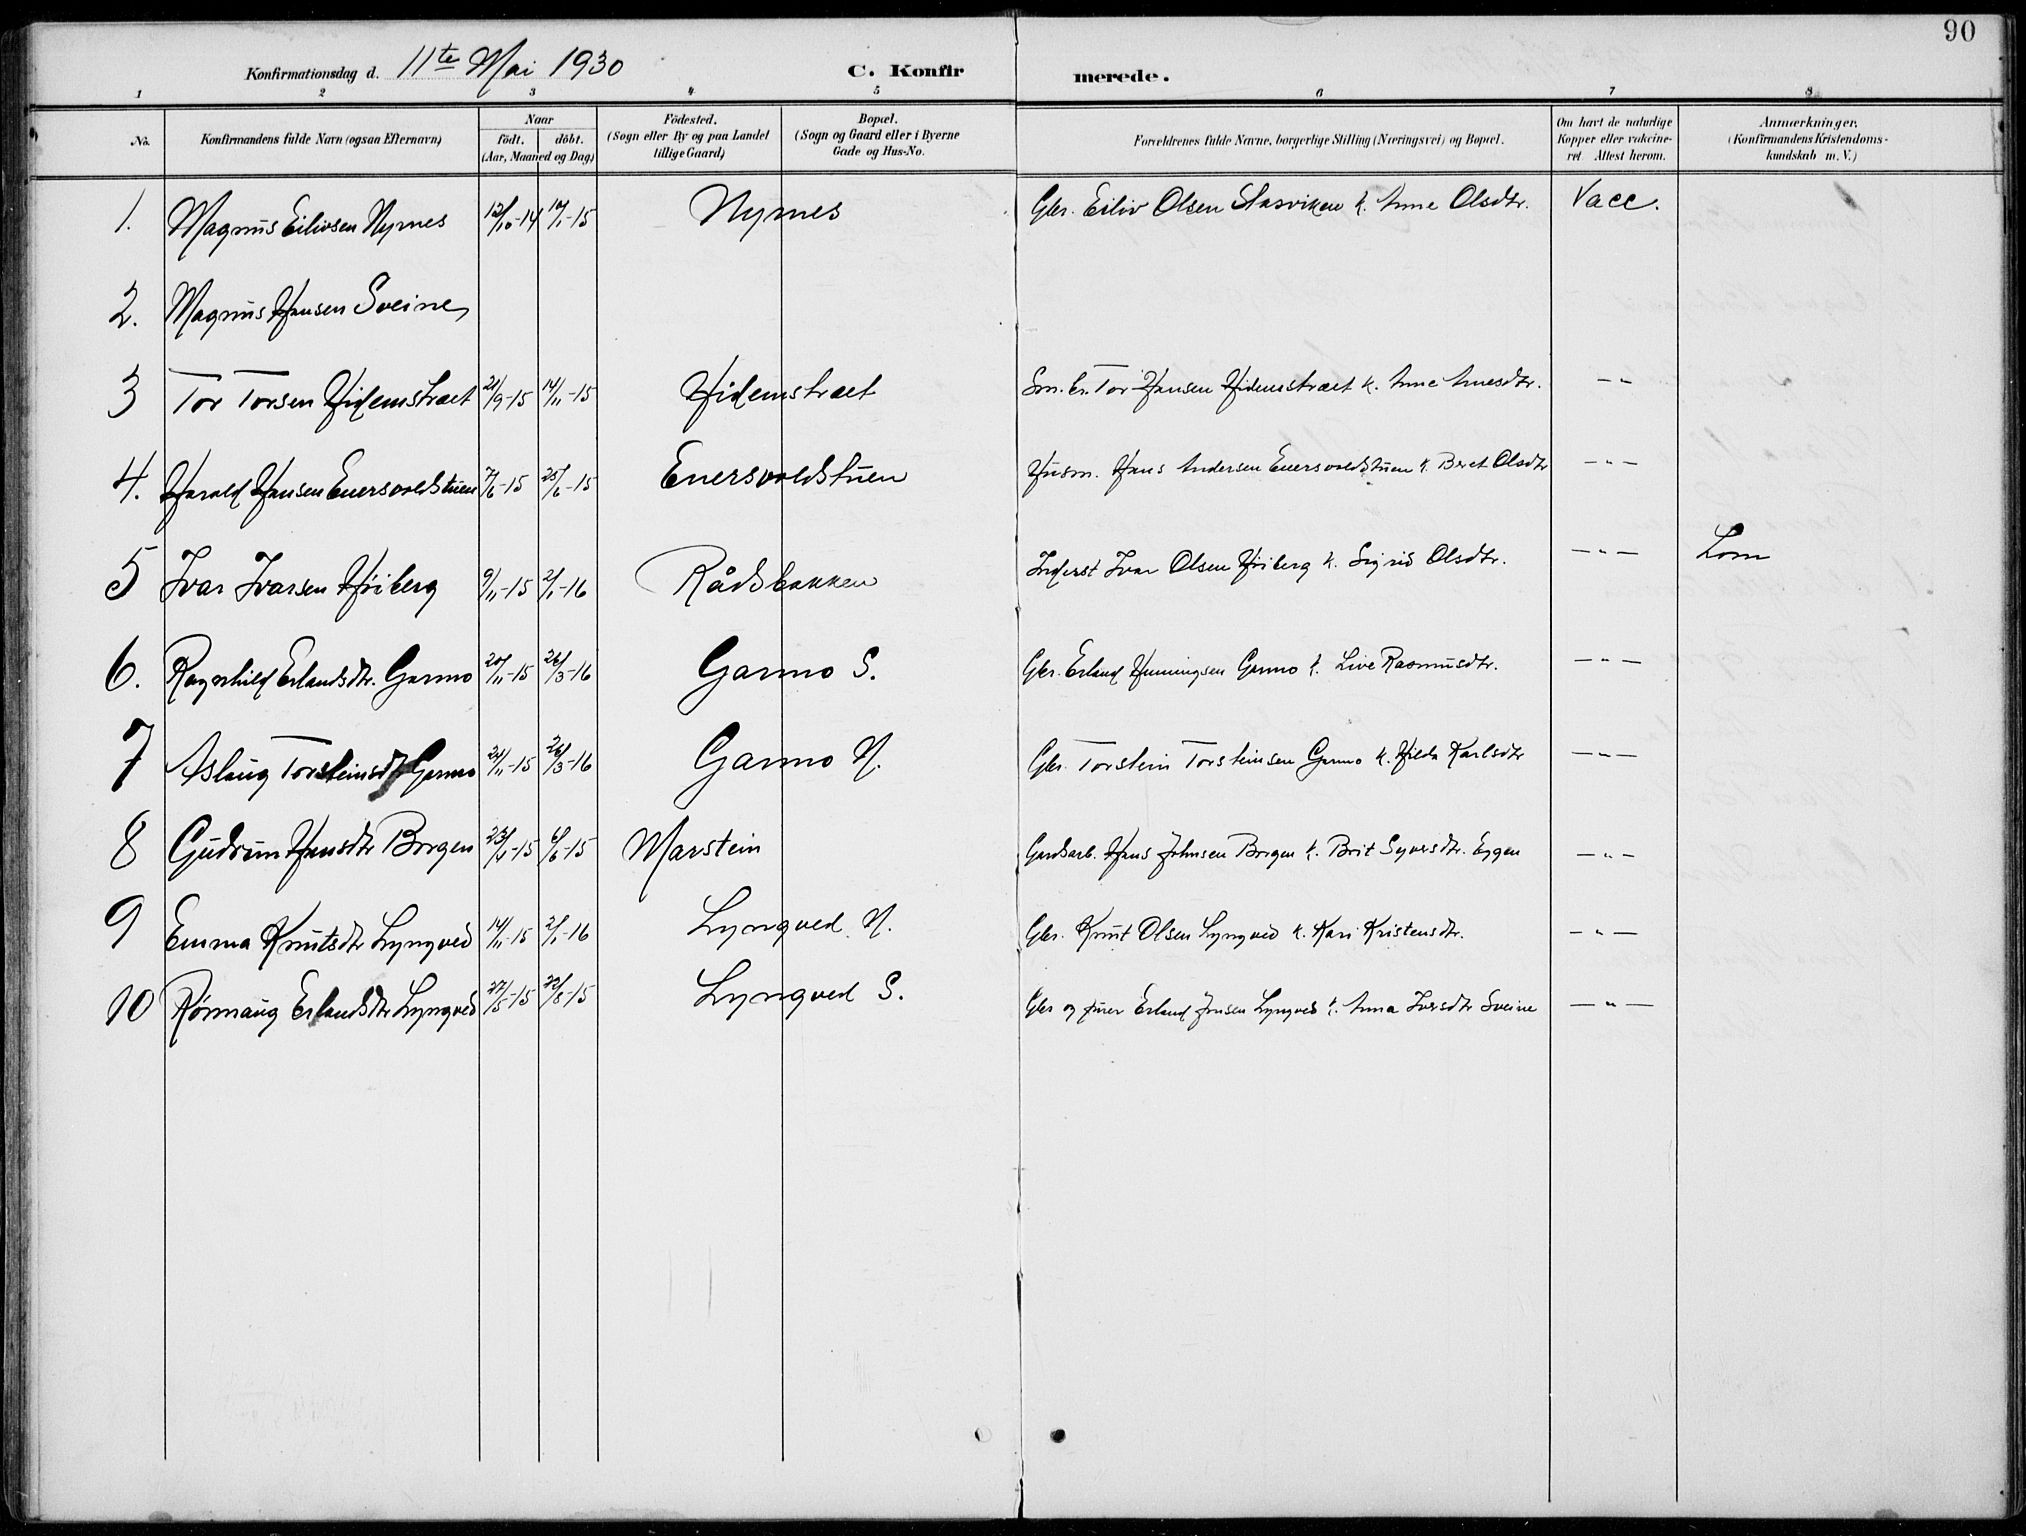 90
Konfirmationsdag d. 11te Mai 1930 C. Konfirmerede.
1 2 3 4 5 6 7 8
No. Konfirmandens fulde Navn (ogsaa Efternavn) Naar födt. döbt. (Aar, Maaned og Dag) Födested. (Sogn eller By og paa Landet tillige Gaard) Bopæl. (Sogn og Gaard eller i Byerne Gade og Hus-No. Forældrenes fulde Navne, borgerlige Stilling (Næringsvei) og Bopæl. Om havt de naturlige Kopper eller vakcineret. Attest herom. Anmærkninger, (Konfirmandens Kristendomskundskab m. V.)
1. Magnus Eilivsen Nyrnes 12/10-14 17/1-15 Nyrnes Gbr. Eiliv Olsen k. Anne Olsdtr. Vacc.
2. Magnus Hansen Sveine
3 Tor Torsen Hidemstræt 21/9-15 14/11-15 Hidemstræt Sm. br. Tor Hansen Hidemstræt k. Anne Amesdtr. -"-
4. Harald Hansen Enersvoldstuen 7/6-15 25/6-15 Enersvoldstuen Husm. Hans Andersen Enersvoldstuen k. Beret Olsdtr -"-
5 Ivar Ivarsen Høiberg 9/11-15 2/1-16 Rådsbakken Inderst Ivar Olsen Høiberg k. Sigrid Olsdtr. -"- Lom
6. Ragnhild Erlandsdtr. Garmo 20/11-15 26/3-16 Garmo S. Gbr. Erland Henningsen Garmo k. Live Rasmusdtr. -"-
7 Aslaug Torsteinsdtr Garmo 21/11-15 26/3-16 Garmo N. Gbr. Torstein Torsteinsen Garmo k. Hilda Karlsdtr -"-
8 Gudrun Hansdtr Borgen 23/4-15 6/6-15 Marstein Gardsarb. Hans Johnsen Borgen k. Brit Syversdtr. Eggen -"-
9 Emma Knutsdtr Lyngved 14/11-15 2/1-16 Lyngved N. Gbr. Knut Olsen Lyngved k. Kari Kristensdtr. -"-
10 Rønnaug Erlandsdtr Lyngved 27/5-15 22/8-15 Lyngved S. Gbr og furer Erland Jonsen Lyngved k. Anna Iversdtr Sveine -"-